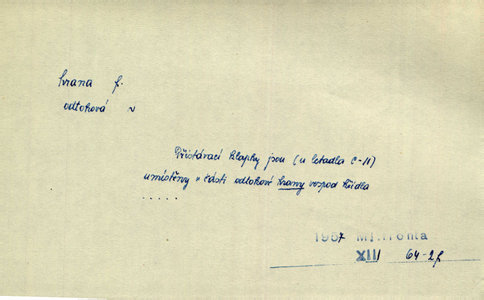 hrana f.
odtoková ~
Přistávací klapky jsou (u letadla C-11)
umístěny v části odtokové hrany vespod křídla
.....
1957 Ml.fronta
XIII 64-2f